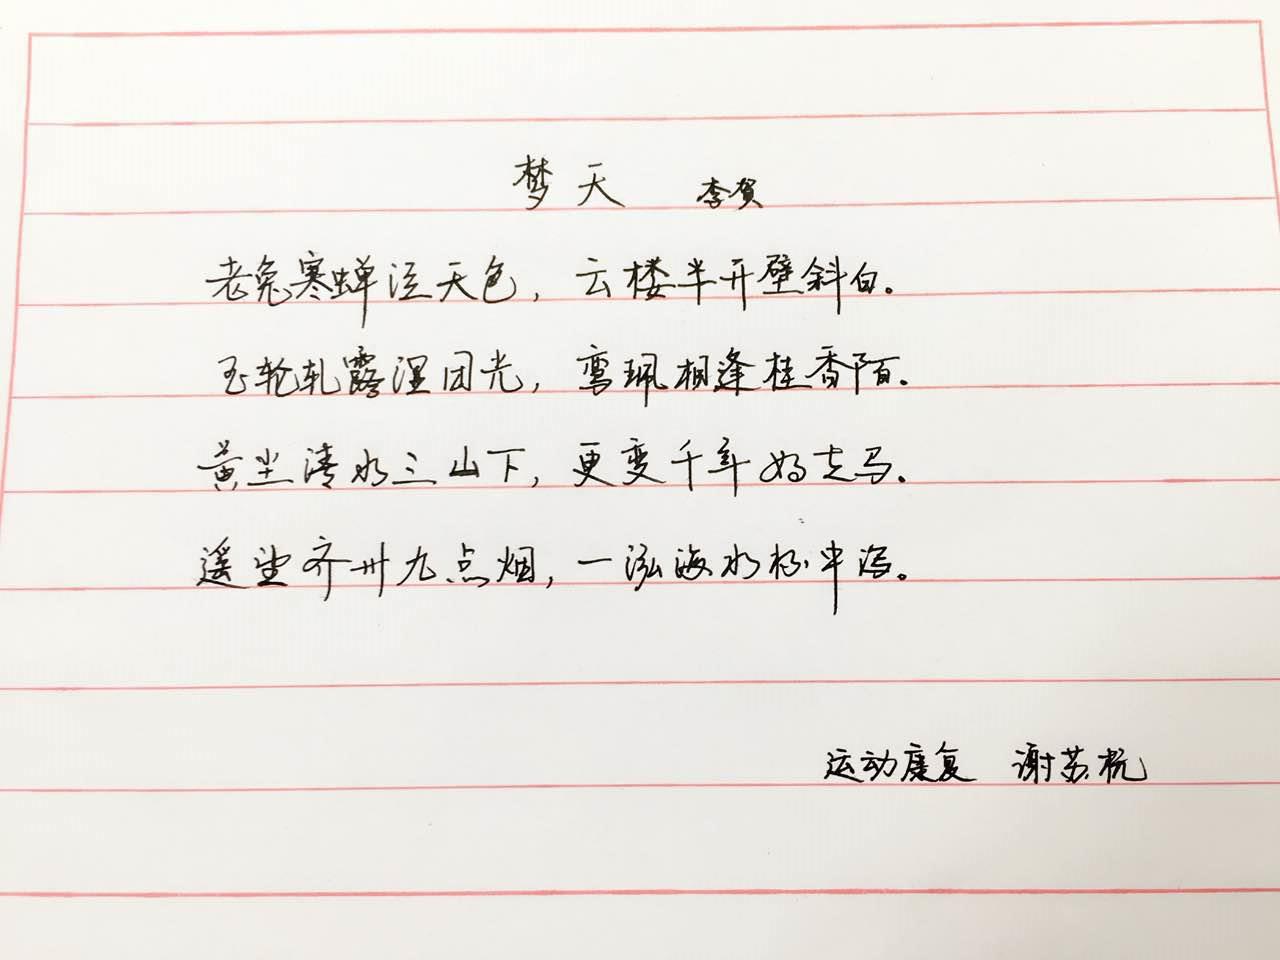 梦天 李贺
老兔寒蝉泣天色，云楼半开壁斜白。
玉轮轧露湿团光，鸾珮相逢桂香陌。
黄尘清水三山下，更变千年如走马。
遥望齐州九点烟，一泓海水杯中泻。
运动康复 谢苏杭